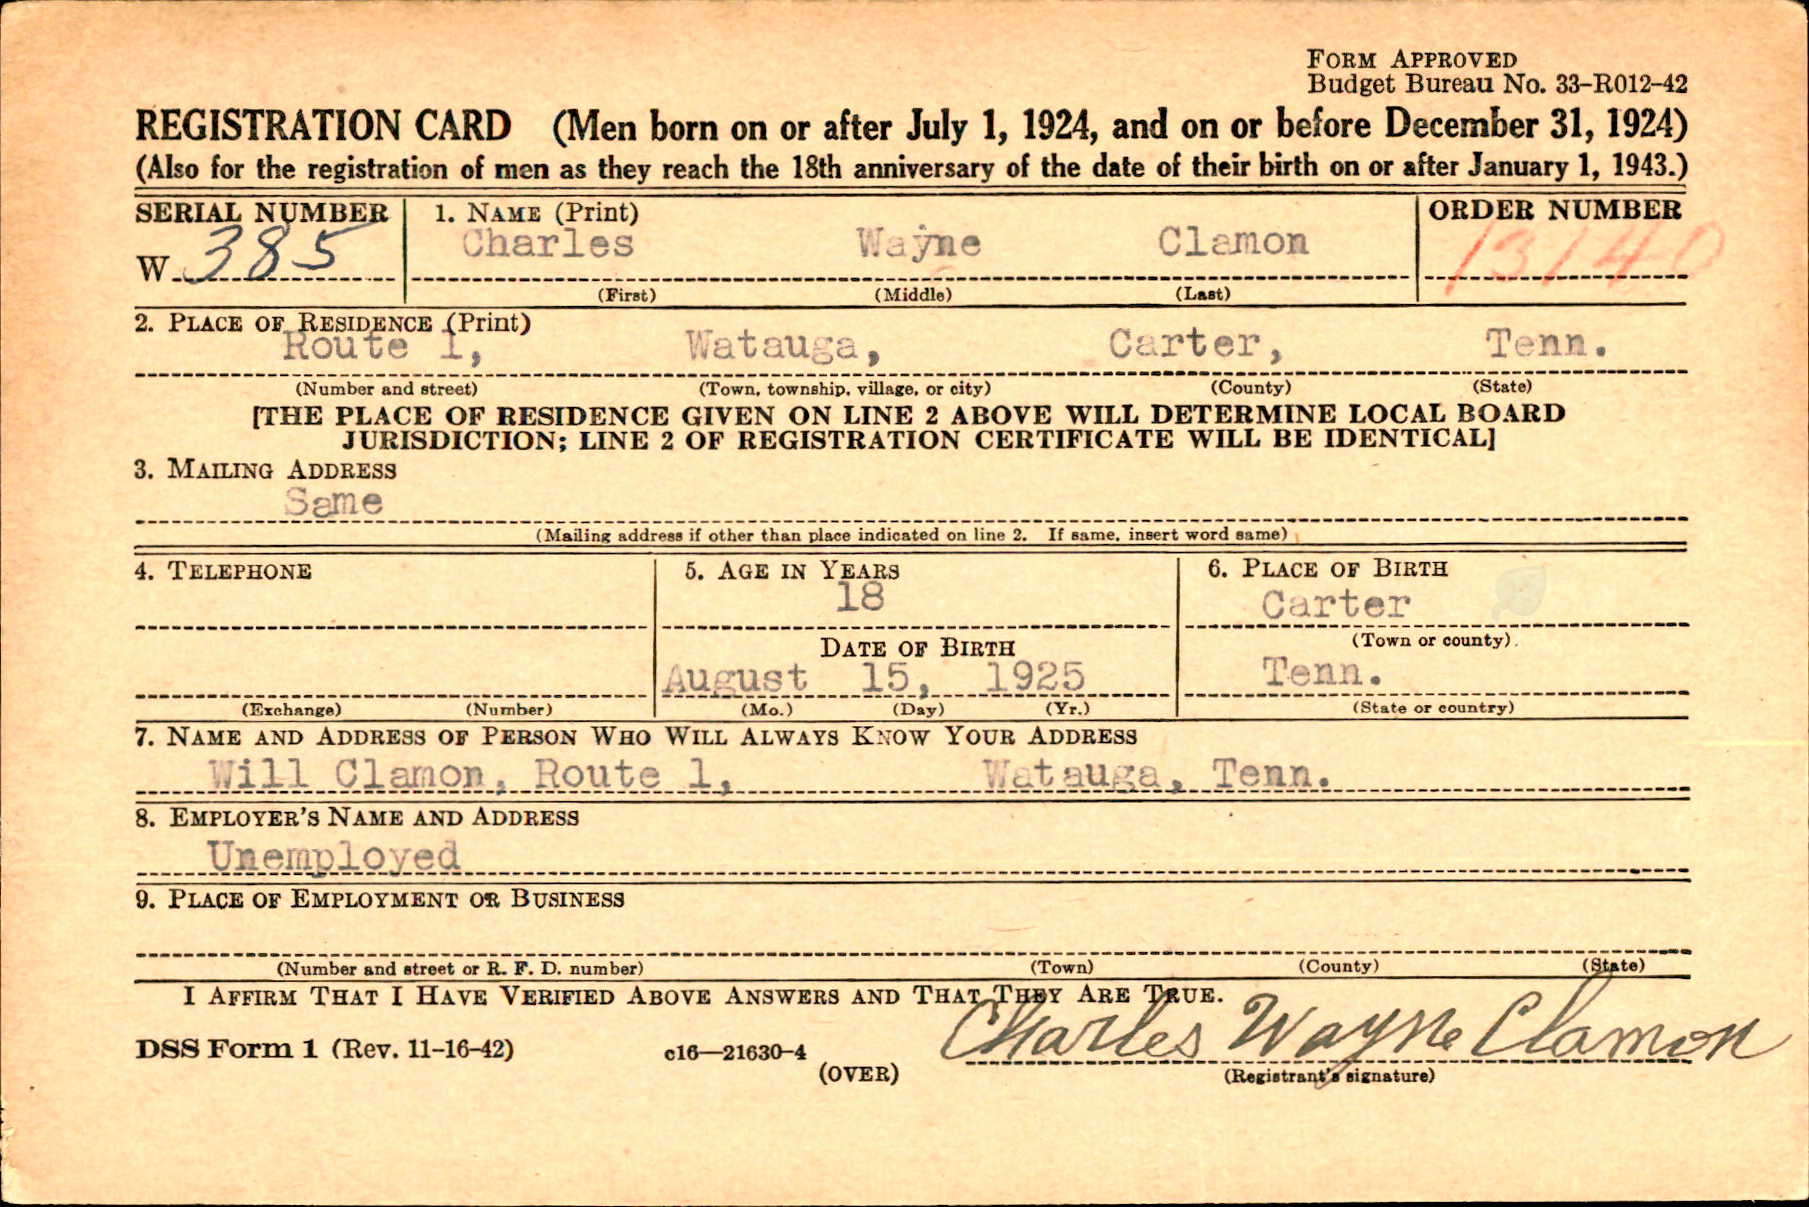 FORM APPROVED
Budget Bureau No. 33-R012-42
REGISTRATION CARD (Men born on or after July 1, 1924, and on or before December 31, 1924)
(Also for the registration of men as they reach the 18th anniversary of the date of their birth on or after January 1, 1943.)
SERIAL NUMBER 1. NAME (Print) ORDER NUMBER
W 385 Charles Wayne Clamon 13140
(First) (Middle) (Last)
2. PLACE OF RESIDENCE (Print)
Route 1, Watauga, Carter, Tenn.
(Number and street) (Town, township, village, or city) (County) (State)
[THE PLACE OF RESIDENCE GIVEN ON LINE 2 ABOVE WILL DETERMINE LOCAL BOARD
JURISDICTION; LINE 2 OF REGISTRATION CERTIFICATE WILL BE IDENTICAL]
3. MAILING ADDRESS
Same
(Mailing address if other than place indicated on line 2. If same, insert word same)
4. TELEPHONE 5. AGE IN YEARS 6. PLACE OF BIRTH
18 Carter
DATE OF BIRTH (Town or county)
August 15, 1925 Tenn.
(Exchange) (Number) (Mo.) (Day) (Yr.) (State or country)
7. NAME AND ADDRESS OF PERSON WHO WILL ALWAYS KNOW YOUR ADDRESS
Will Clamon, Route 1, Watauga, Tenn.
8. EMPLOYER'S NAME AND ADDRESS
Unemployed
9. PLACE OF EMPLOYMENT OR BUSINESS
(Number and street or R. F. D. number) (Town) (County) (State)
I AFFIRM THAT I HAVE VERIFIED ABOVE ANSWERS AND THAT THEY ARE TRUE.
DSS Form 1 (Rev. 11-16-42) c16—21630-4 Charles Wayne Clamon
(OVER) (Registrant's signature)